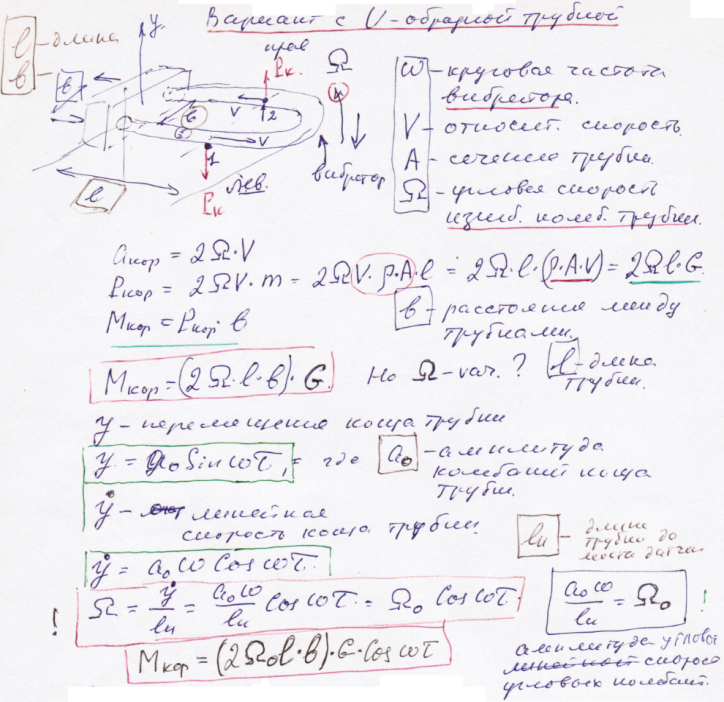 Вариант с U-образной трубкой
l - длина
в -
y
прав
Pк.
Ω
в
V
G
2
V
G
1
лев.
Pк
вибратор
l
ω - круговая частота
вибратора.
V - относит. скорость
A - сечение трубки.
Ω - угловая скорость
изгиб. колеб. трубки.
aкор = 2Ω·V
Pкор = 2ΩV·m = 2ΩV·ρ·A·l = 2Ω·l·(ρ·A·V) = 2Ωl·G
Mкор = Pкор·в
в - расстояние между
трубками.
Mкор = (2Ω·l·в)·G. Но Ω - var. ?
l - длина
трубки.
y - перемещение конца трубки
y = a₀ Sin ωτ, = где a₀ - амплитуда
колебаний конца
трубки.
ẏ - линейная
скорость конца трубки.
lи - длина
трубки до
места датчи
ẏ = a₀ω Cos ωτ.
! Ω = ẏ/lи = a₀ω/lи Cos ωτ = Ω₀ Cos ωτ.
a₀ω/lи = Ω₀ !
амплитуда углово
скорос
угловых колебаний.
Mкор = (2Ω₀l·в)·G·Cos ωτ